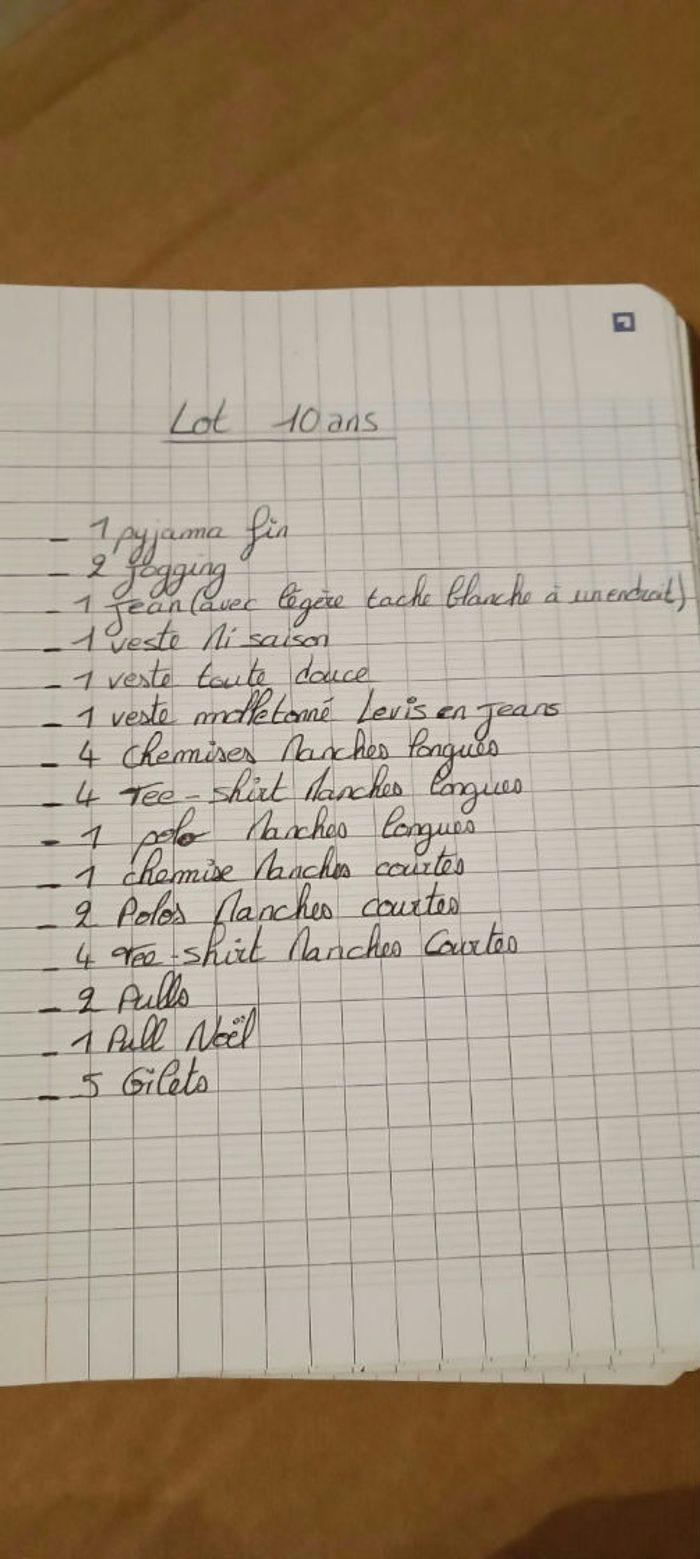 Lot 10 ans
- 1 pyjama fin
- 2 Jogging
- 1 Jean (avec légère tache blanche à un endroit)
- 1 veste Mi saison
- 1 veste toute douce
- 1 veste molletonné Levis en Jeans
- 4 Chemises Manches longues
- 4 Tee-shirt Manches longues
- 1 polo Manches longues
- 1 chemise Manches courtes
- 2 Polos Manches courtes
- 4 Tee-shirt Manches Courtes
- 2 Pulls
- 1 Pull Noël
- 5 Gilets